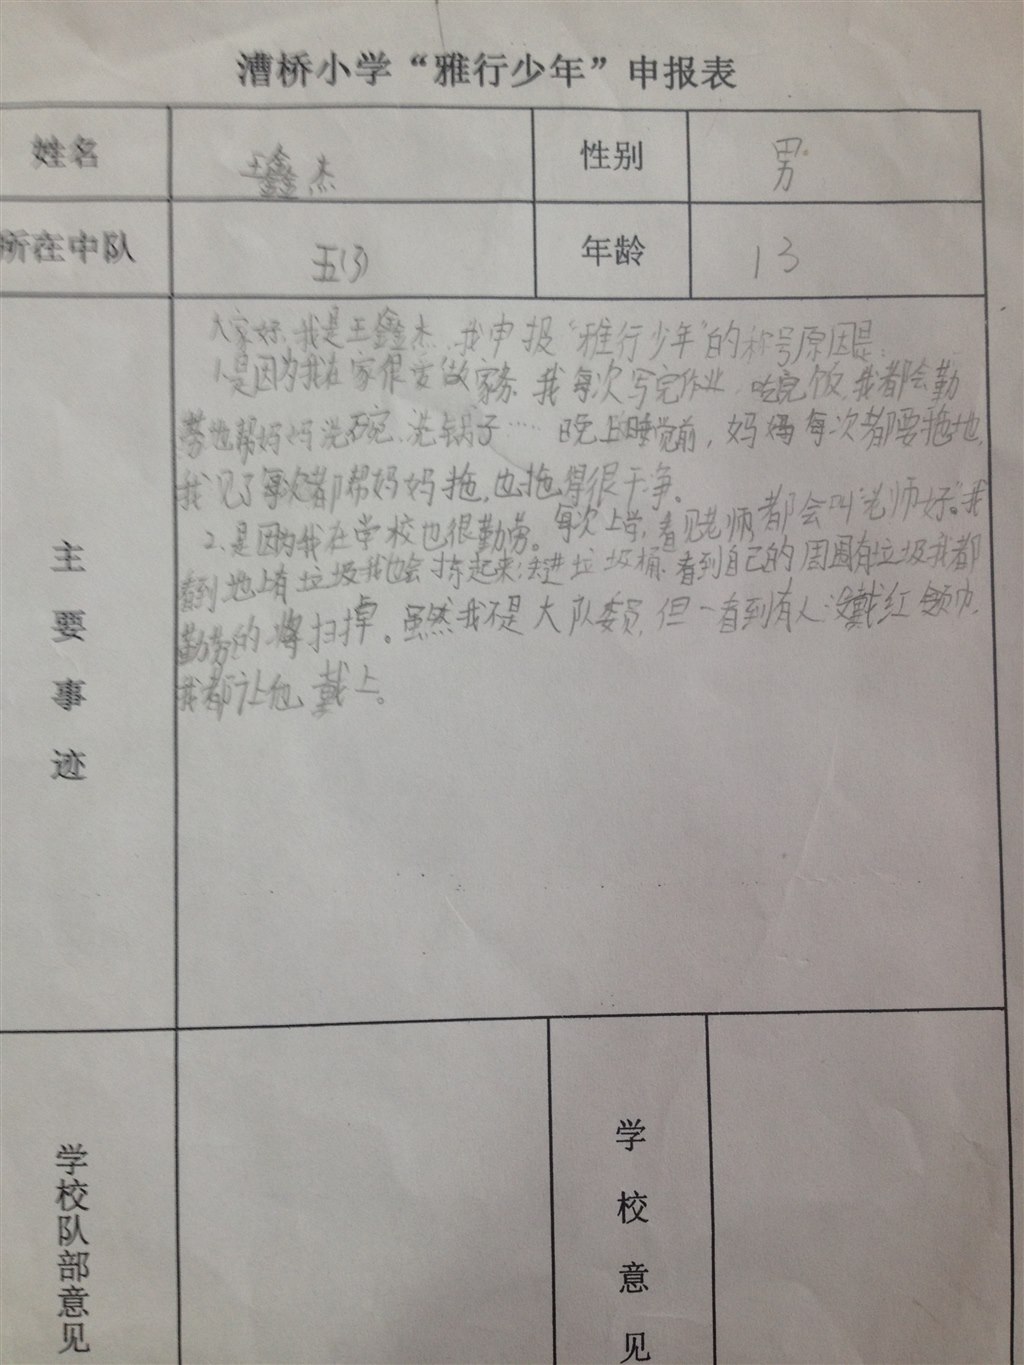 漕桥小学“雅行少年”申报表
姓名 王鑫杰 性别 男
所在中队 五(3) 年龄 13
主要事迹
大家好，我是王鑫杰，我申报“雅行少年”的称号原因是：
1、是因为我在家很爱做家务，我每次写完作业，吃完饭，我都会勤
劳地帮妈妈洗碗、洗锅子……晚上睡觉前，妈妈每次都要拖地，
我见了每次都帮妈妈拖，也拖得很干净。
2、是因为我在学校也很勤劳。每次上学，看见老师都会叫“老师好”。我
看到地上有垃圾我也会拣起来，丢进垃圾桶，看到自己的周围有垃圾我都
勤劳的将扫掉。虽然我不是大队委员，但一看到有人没戴红领巾，
我都让他戴上。
学校队部意见
学校意见